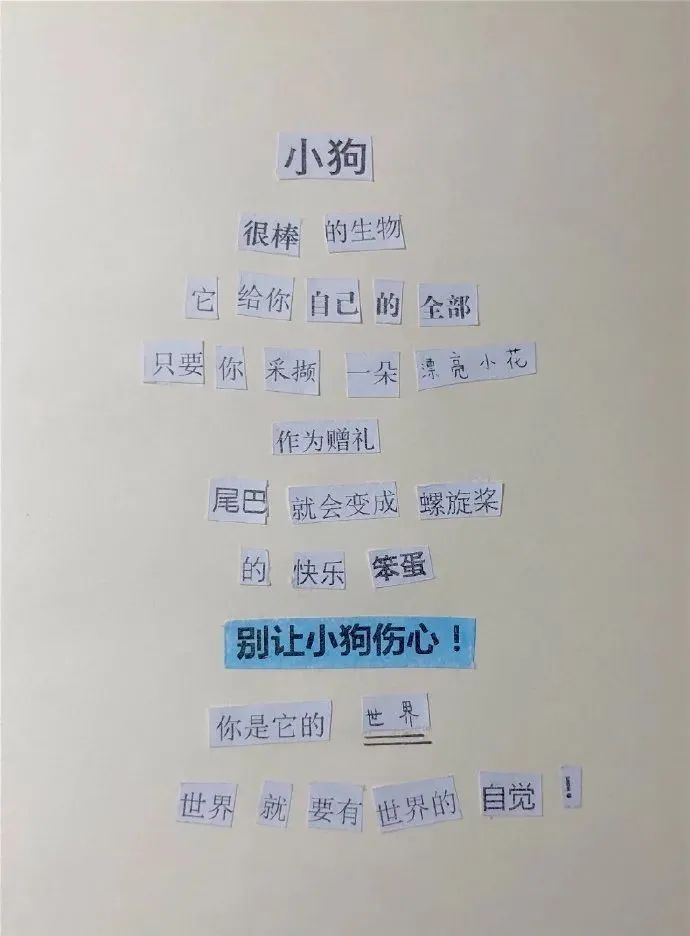 小狗
很棒 的生物
它 给你 自己 的 全部
只要 你 采撷 一朵 漂亮小花
作为赠礼
尾巴 就会变成 螺旋桨
的 快乐 笨蛋
别让小狗伤心！
你是它的 世界
世界 就 要有 世界的 自觉 ！